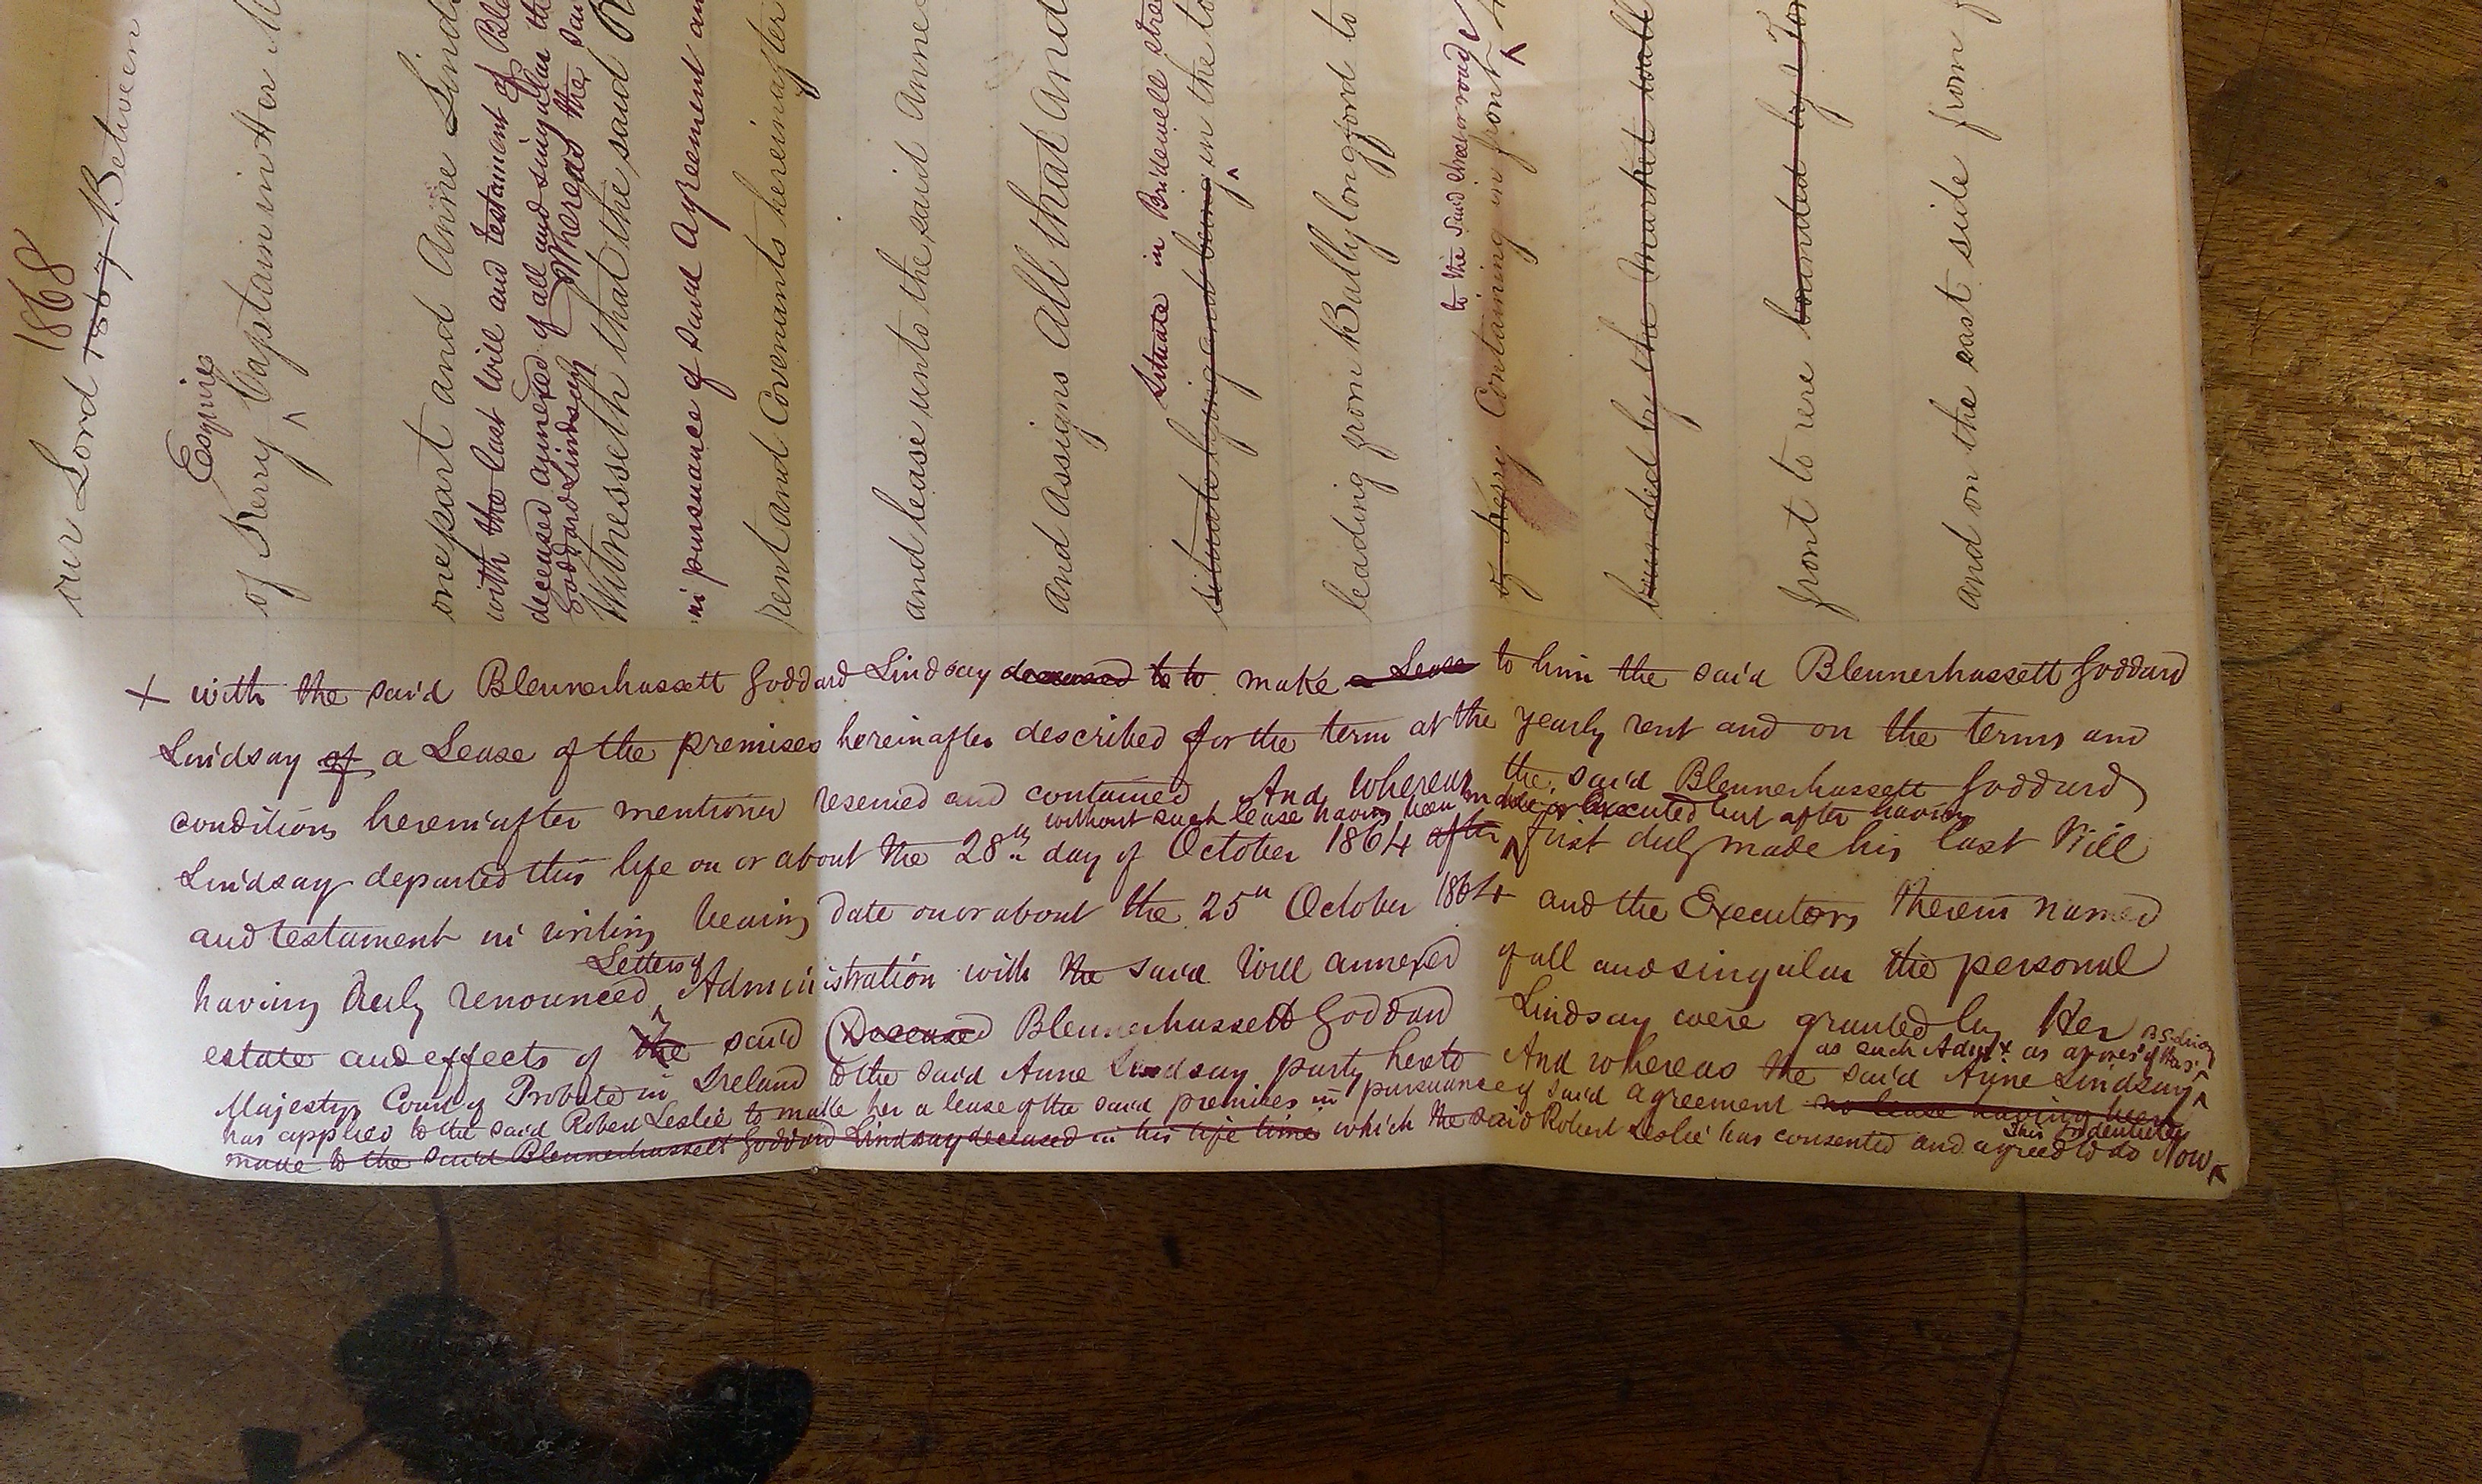 1868
our Lord 1867 Between
Esquires
of Kerry Captain in Her
one part and Anne Lind
with the last will and testament of Ble
deceased annexed of all and singular the
Goddard Lindsay Whereas the sai
Witnesseth that the said R
in pursuance of said Agreement an
rent and Covenants hereinafter
and lease unto the said Anne
and Assigns All that and
Situate in Bridewell stre
situate lying and being in the to
leading from Ballylongford to
to the said street or road
of Kerry Containing in front
bounded by the market wall
front to rere bounded by a
and on the east side from
× with the said Blennerhassett Goddard Lindsay deceased to to make a Lease to him the said Blennerhassett Goddard
Lindsay of a Lease of the premises hereinafter described for the term at the yearly rent and on the terms and
conditions hereinafter mentioned reserved and contained And Whereas the said Blennerhassett Goddard
without such lease having been made or executed but after having
Lindsay departed this life on or about the 28th day of October 1864 after first duly made his last Will
and testament in writing bearing date on or about the 25th October 1864 and the Executors therein named
Letters of
having duly renounced Administration with the said Will annexed of all and singular the personal
estate and effects of the said Deceased Blennerhassett Goddard Lindsay were granted by Her
as such Admx as
Majestys Court of Probate in Ireland to the said Anne Lindsay party hereto And whereas the said Anne Lindsay
has applied to the said Robert Leslie to make her a lease of the said premises in pursuance of said agreement no lease having been
This Indenture
made to the said Blennerhassett Goddard Lindsay deceased in his life time which the said Robert Leslie has consented and agreed to do Now